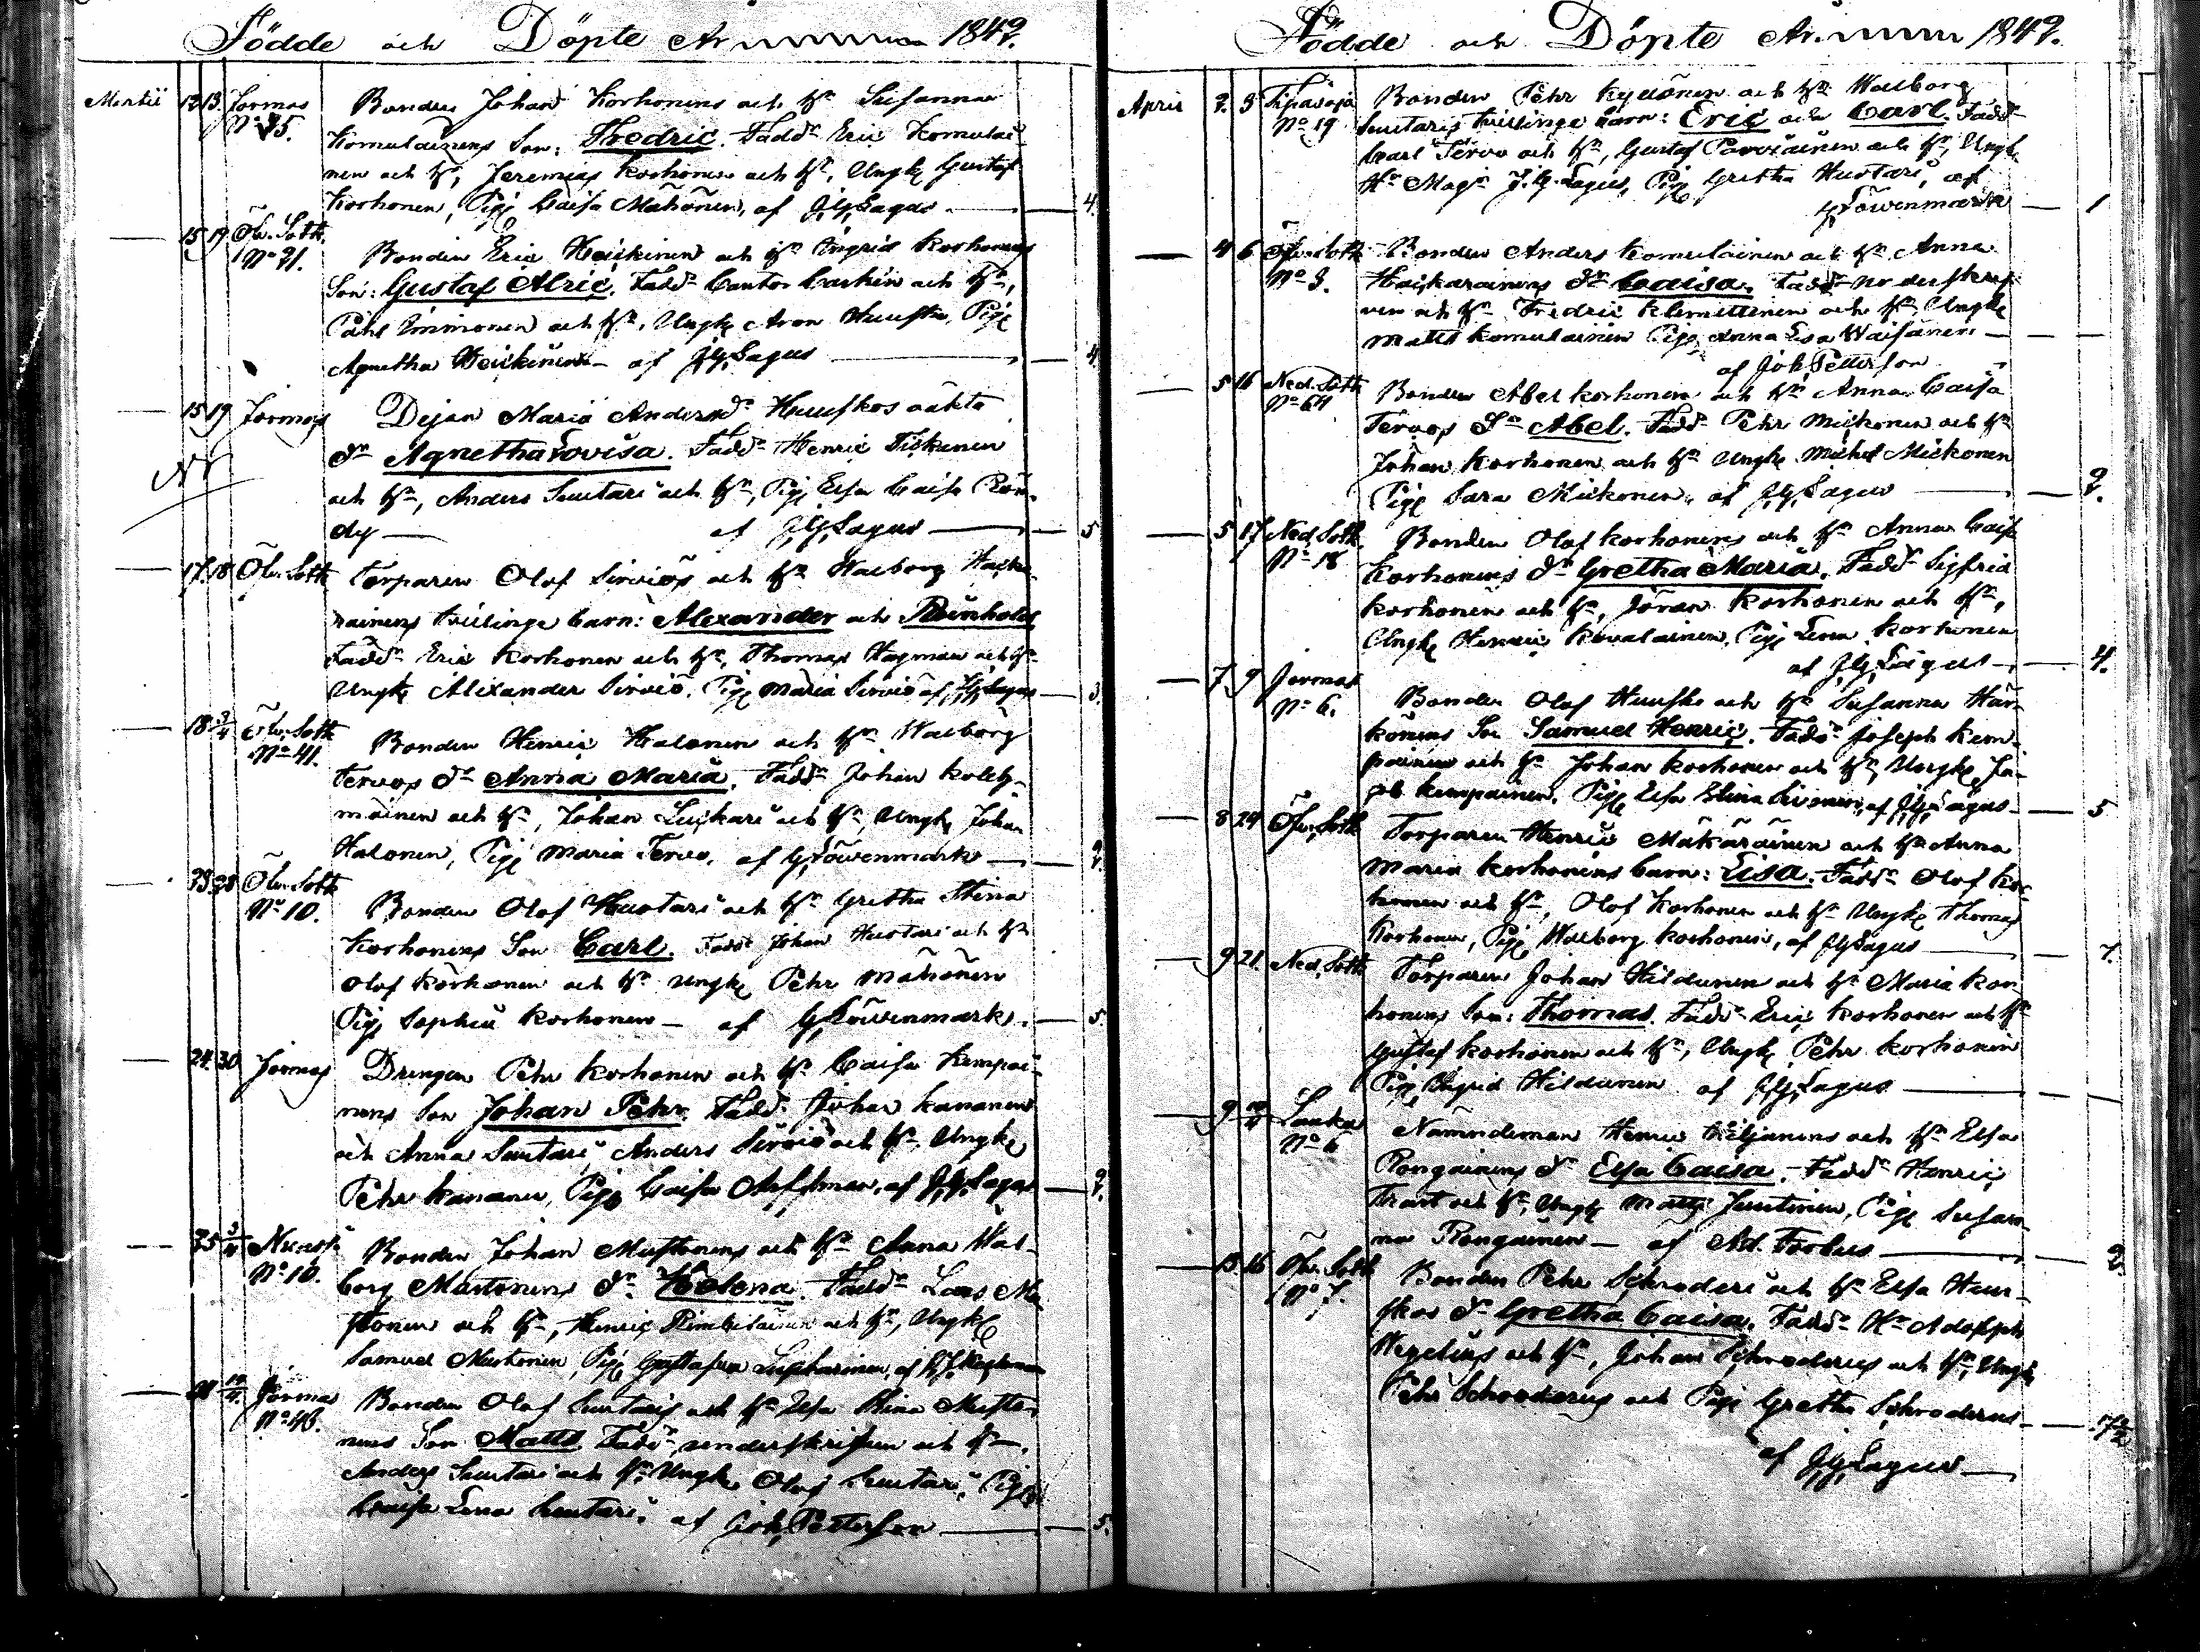 Födde och Döpte År 1842.
Martii 12. 13. Jormas Bonden Johan Korhonens och H:u Susanna
N:o 25. Komulainens Son: Fredric. Fadd:r Eric Komulai-
nen och H:u, Jeremias Korhonen och H:u, Ungk Gustaf
Korhonen, Pig Caisa Mähönen, af J.G. Lagus 4.
15 19 Öfv. Sotk.
N:o 21. Bonden Eric Heickinen och H:u Ingrid Korhonens
Son: Gustaf Alric. Fadd:r Cantor och H:u,
Påhl Immonen och H:u, Ungk Aron Huusko, Pig
Agnetha Heickinen af J.G. Lagus 4
15 19 Jormas Dejan Maria Andersd:r Huuskos oäkta
D:r Agnetha Lovisa. Fadd:r Henric Tiskunen
och H:u, Anders Suutari och H:u, Pig Elsa Caisa Rön-
dy af J.G. Lagus 5
17 18 Öfv. Sotk Torparen Olof Sirviös och H:u Walborg Hacka-
rainens tvillinge barn: Alexander och Reinhold
Fadd:r Eric Korhonen och H:u, Thomas Hagman och H:u
Ungk Alexander Sirviö, Pig Maria Sirviö af J.G. Lagus 3.
18 3/4 Öfv. Sotk
N:o 41. Bonden Henric Halonen och H:u Walborg
Tervos D:r Anna Maria. Fadd:r Johan Koleh-
mainen och H:u, Johan Luckari och H:u, Ungk Johan
Halonen, Pig Maria Tervo, af G. Löwenmark 2.
23 28 Öfv. Sotk
N:o 10. Bonden Olof Huotari och H:u Gretha Stina
Korhonens Son Carl. Fadd:r Johan Huotari och H:u
Olof Korhonen och H:u Ungk Pehr Mähönen
Pig Sophia Korhonen af G. Löwenmark. 5.
24. 30 Jormas Drengen Pehr Korhonen och H:u Caisa Kempai-
nens Son Johan Pehr. Fadd:r Johan Kananen
och Anna Suutari Anders Sirviö och H:u, Ungk
Pehr Kananen, Pig Caisa af J.G. Lagus 2.
25 3/4
N:o 10. Bonden Johan Mustonens och H:u Anna Wal-
borg Mustonens D:r Helena. Fadd:r Lars Mu-
stonen och H:u, Henric Rimbiläinen och H:u, Ungk
Samuel Mustonen, Pig Gustafwa
28 10/4 Jormas
N:o 46. Bonden Olof Suutaris och H:u Elsa Stina Musto-
nens Son Matts Fadd:r underskrifven och H:u.
Anders Suutari och H:u Ungk Olof Suutari, Pig
Caisa Lena Suutari, af Joh. Petterson 5.
Födde och Döpte År 1842.
April 2. 3 Tipasoja Bonden Pehr Kyllönen och H:u Walborg
N:o 19 Suutaris tvillinge barn: Eric och Carl. Fadd:r
Carl Tervo och H:u, Gustaf Parviainen och H:u, Ungk
H:r Mag:r J.G. Lagus, Pig Gretha Huotari, af
G. Löwenmark 1
4 6 Öfv. Sotk Bonden Anders Komulainen och H:u Anna
N:o 3. Hackarainens D:r Caisa. Fadd:r underskref-
ven och H:u Fredric Klemettinen och H:u, Ungk
Matts Komulainen Pig Anna Lisa Waisänen
af Joh. Petterson
5 16 Ned. Sotk Bonden Abel Korhonen och H:u Anna Caisa
N:o 64 Tervos S:n Abel. Fadd:r Pehr Mickonen och H:u
Johan Korhonen och H:u Ungk Michel Mickonen
Pig Sara Mickonen, af J.G. Lagus 2.
5 17 Ned. Sotk. Bonden Olof Korhonens och H:u Anna Caisa
N:o 18 Korhonens D:r Gretha Maria. Fadd:r Sigfrid
Korhonen och H:u, Jöran Korhonen och H:u,
Ungk Henric Kovalainen, Pig Lena Korhonen
af J.G. Lagus 4.
7 9 Jormas
N:o 6. Bonden Olof Huusko och H:u Susanna Här-
könens Son Samuel Henric. Fadd:r Joseph Kem-
painen och H:u Johan Korhonen och H:u, Ungk Ja-
cob Kempainen, Pig Elsa Stina af J.G. Lagus 5
8 24 Öfv. Sotk Torparen Henric Mäkäräinen och H:u Anna
Maria Korhonens barn: Lisa. Fadd:r Olof Kor-
honen och H:u, Olof Korhonen och H:u Ungk Thomas
Korhonen, Pig Walborg Korhonen, af J.G. Lagus 7.
9 21. Ned. Sotk Torparen Johan Hildunen och H:u Maria Kor-
honens Son: Thomas. Fadd:r Eric Korhonen och H:u
Gustaf Korhonen och H:u, Ungk Pehr Korhonen
Pig Ingrid Hildunen af J.G. Lagus
9 Laaka
N:o 6 Nämndeman Henric Kiljanens och H:u Elsa
Rongainens D:r Elsa Caisa. Fadd:r Henric
Trast och H:u, Ungk Matts Juntunen, Pig Susan-
na Rongainen af Ad. Forbus 2.
13 16 Öfv. Sotk
N:o 7. Bonden Pehr Schroderi och H:u Elsa Huu-
skos D:r Gretha Caisa. Fadd:r H:r Adolph
Wegelius och H:u, Johan Schroderus och H:u, Ungk
Pehr Schroderus och Pig Gretha Schroderus
af J.G. Lagus